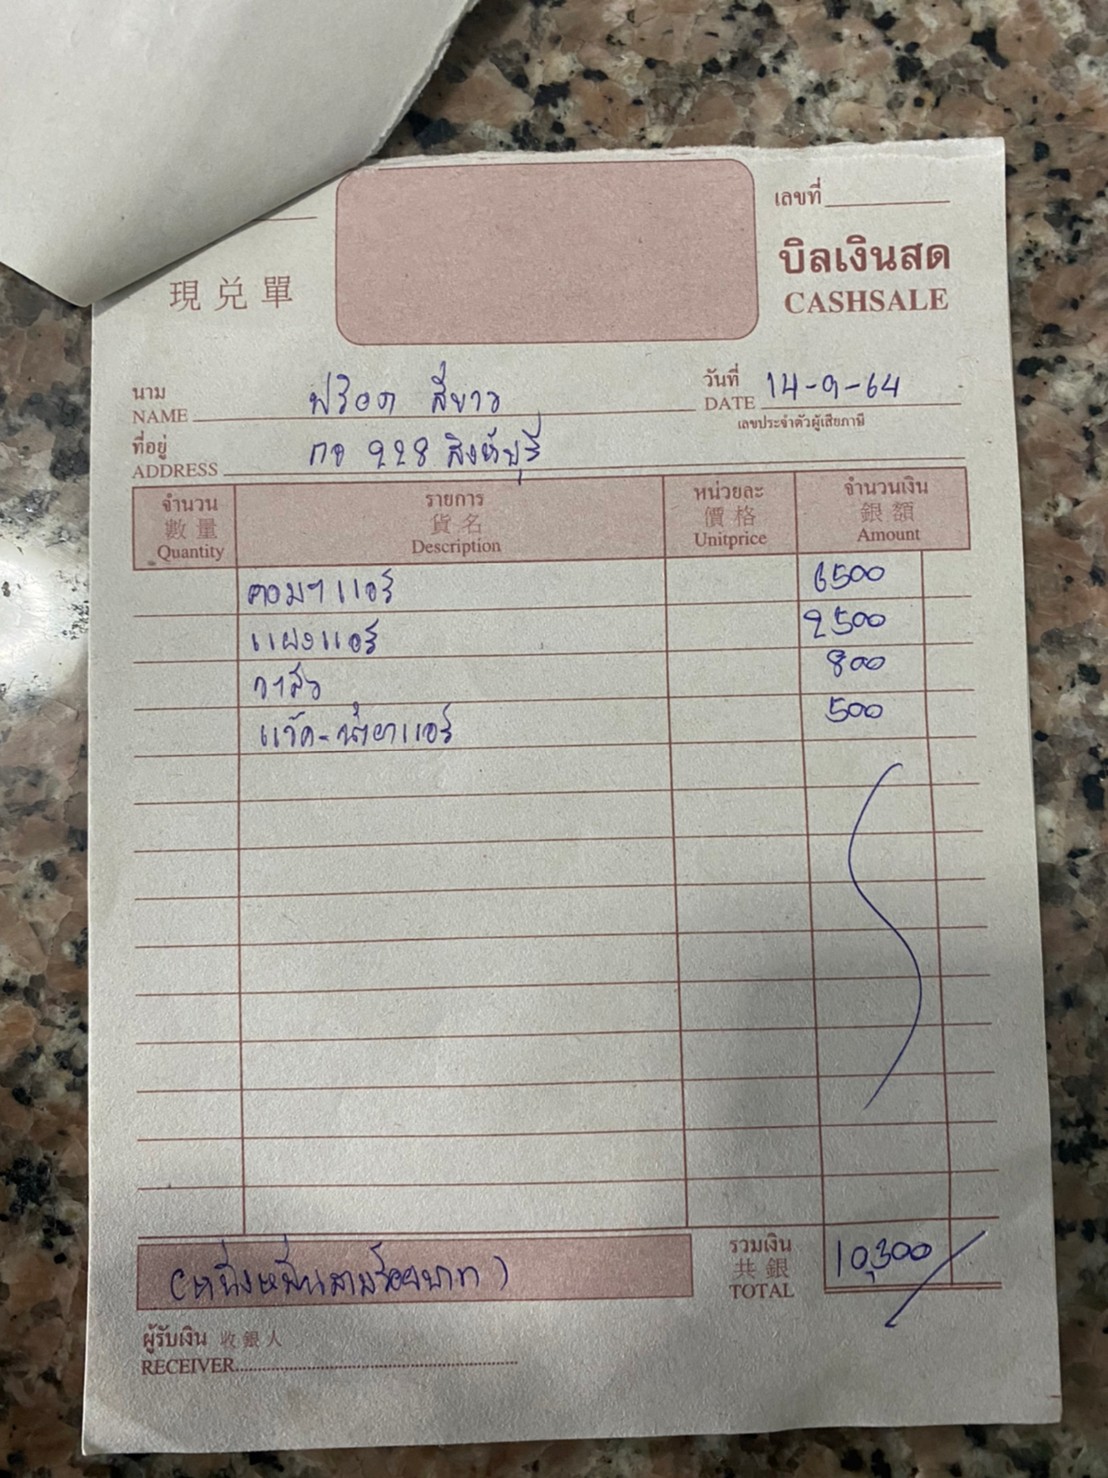 เลขที่
現兑單
บิลเงินสด
CASHSALE
นาม
NAME ฟร้อด สีขาว
วันที่
DATE 14-9-64
เลขประจำตัวผู้เสียภาษี
ที่อยู่
ADDRESS กจ 228 สิงห์บุรี
จำนวน รายการ หน่วยละ จำนวนเงิน
數量 貨名 價格 銀額
Quantity Description Unitprice Amount
คอมฯแอร์ 6500
แผงแอร์ 2500
วาล์ว 800
แว๊ค-น้ำยาแอร์ 500
(หนึ่งหมื่นสามร้อยบาท)
รวมเงิน
共銀
TOTAL 10,300
ผู้รับเงิน 收銀人
RECEIVER